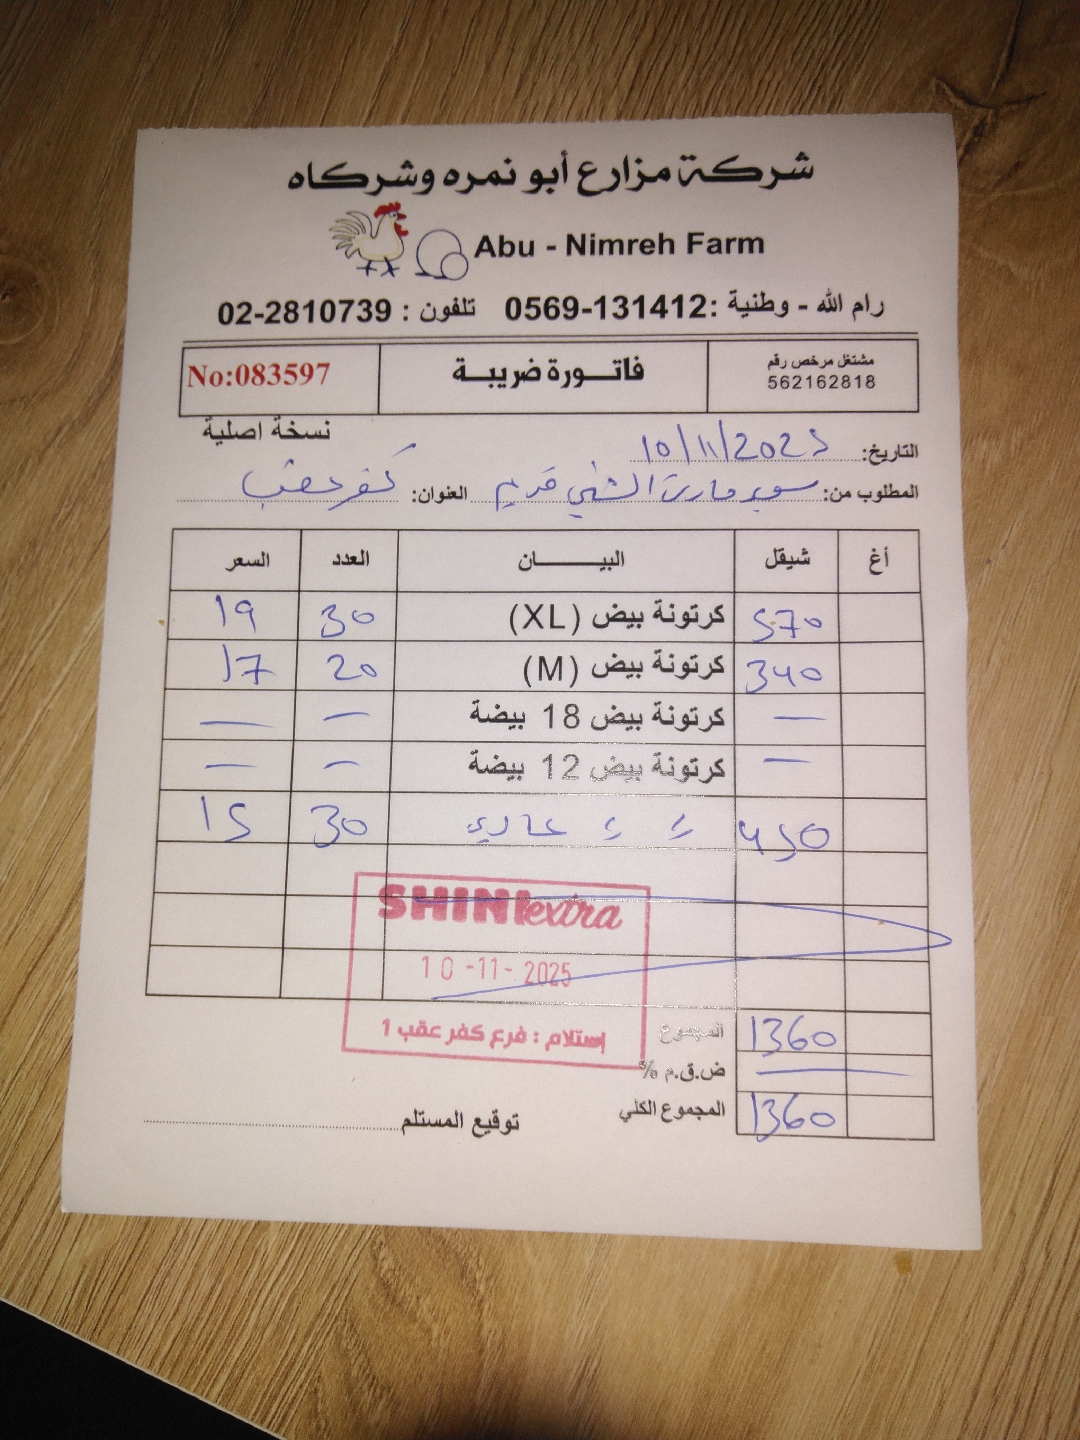 شركة مزارع أبو نمره وشركاه
Abu - Nimreh Farm
رام الله - وطنية :0569-131412 تلفون : 02-2810739
مشتغل مرخص رقم
562162818
فاتورة ضريبة
No:083597
نسخة اصلية
التاريخ: 10/11/2025
المطلوب من: سوبر ماركت الشيني قديم العنوان: كفر عقب
أغ شيقل البيان العدد السعر
570 كرتونة بيض (XL) 30 19
340 كرتونة بيض (M) 20 17
— كرتونة بيض 18 بيضة — —
— كرتونة بيض 12 بيضة — —
450 = = عادي 30 15
SHINI extra
10-11-2025
استلام : فرع كفر عقب 1
المجموع 1360
ض.ق.م % —
المجموع الكلي 1360
توقيع المستلم